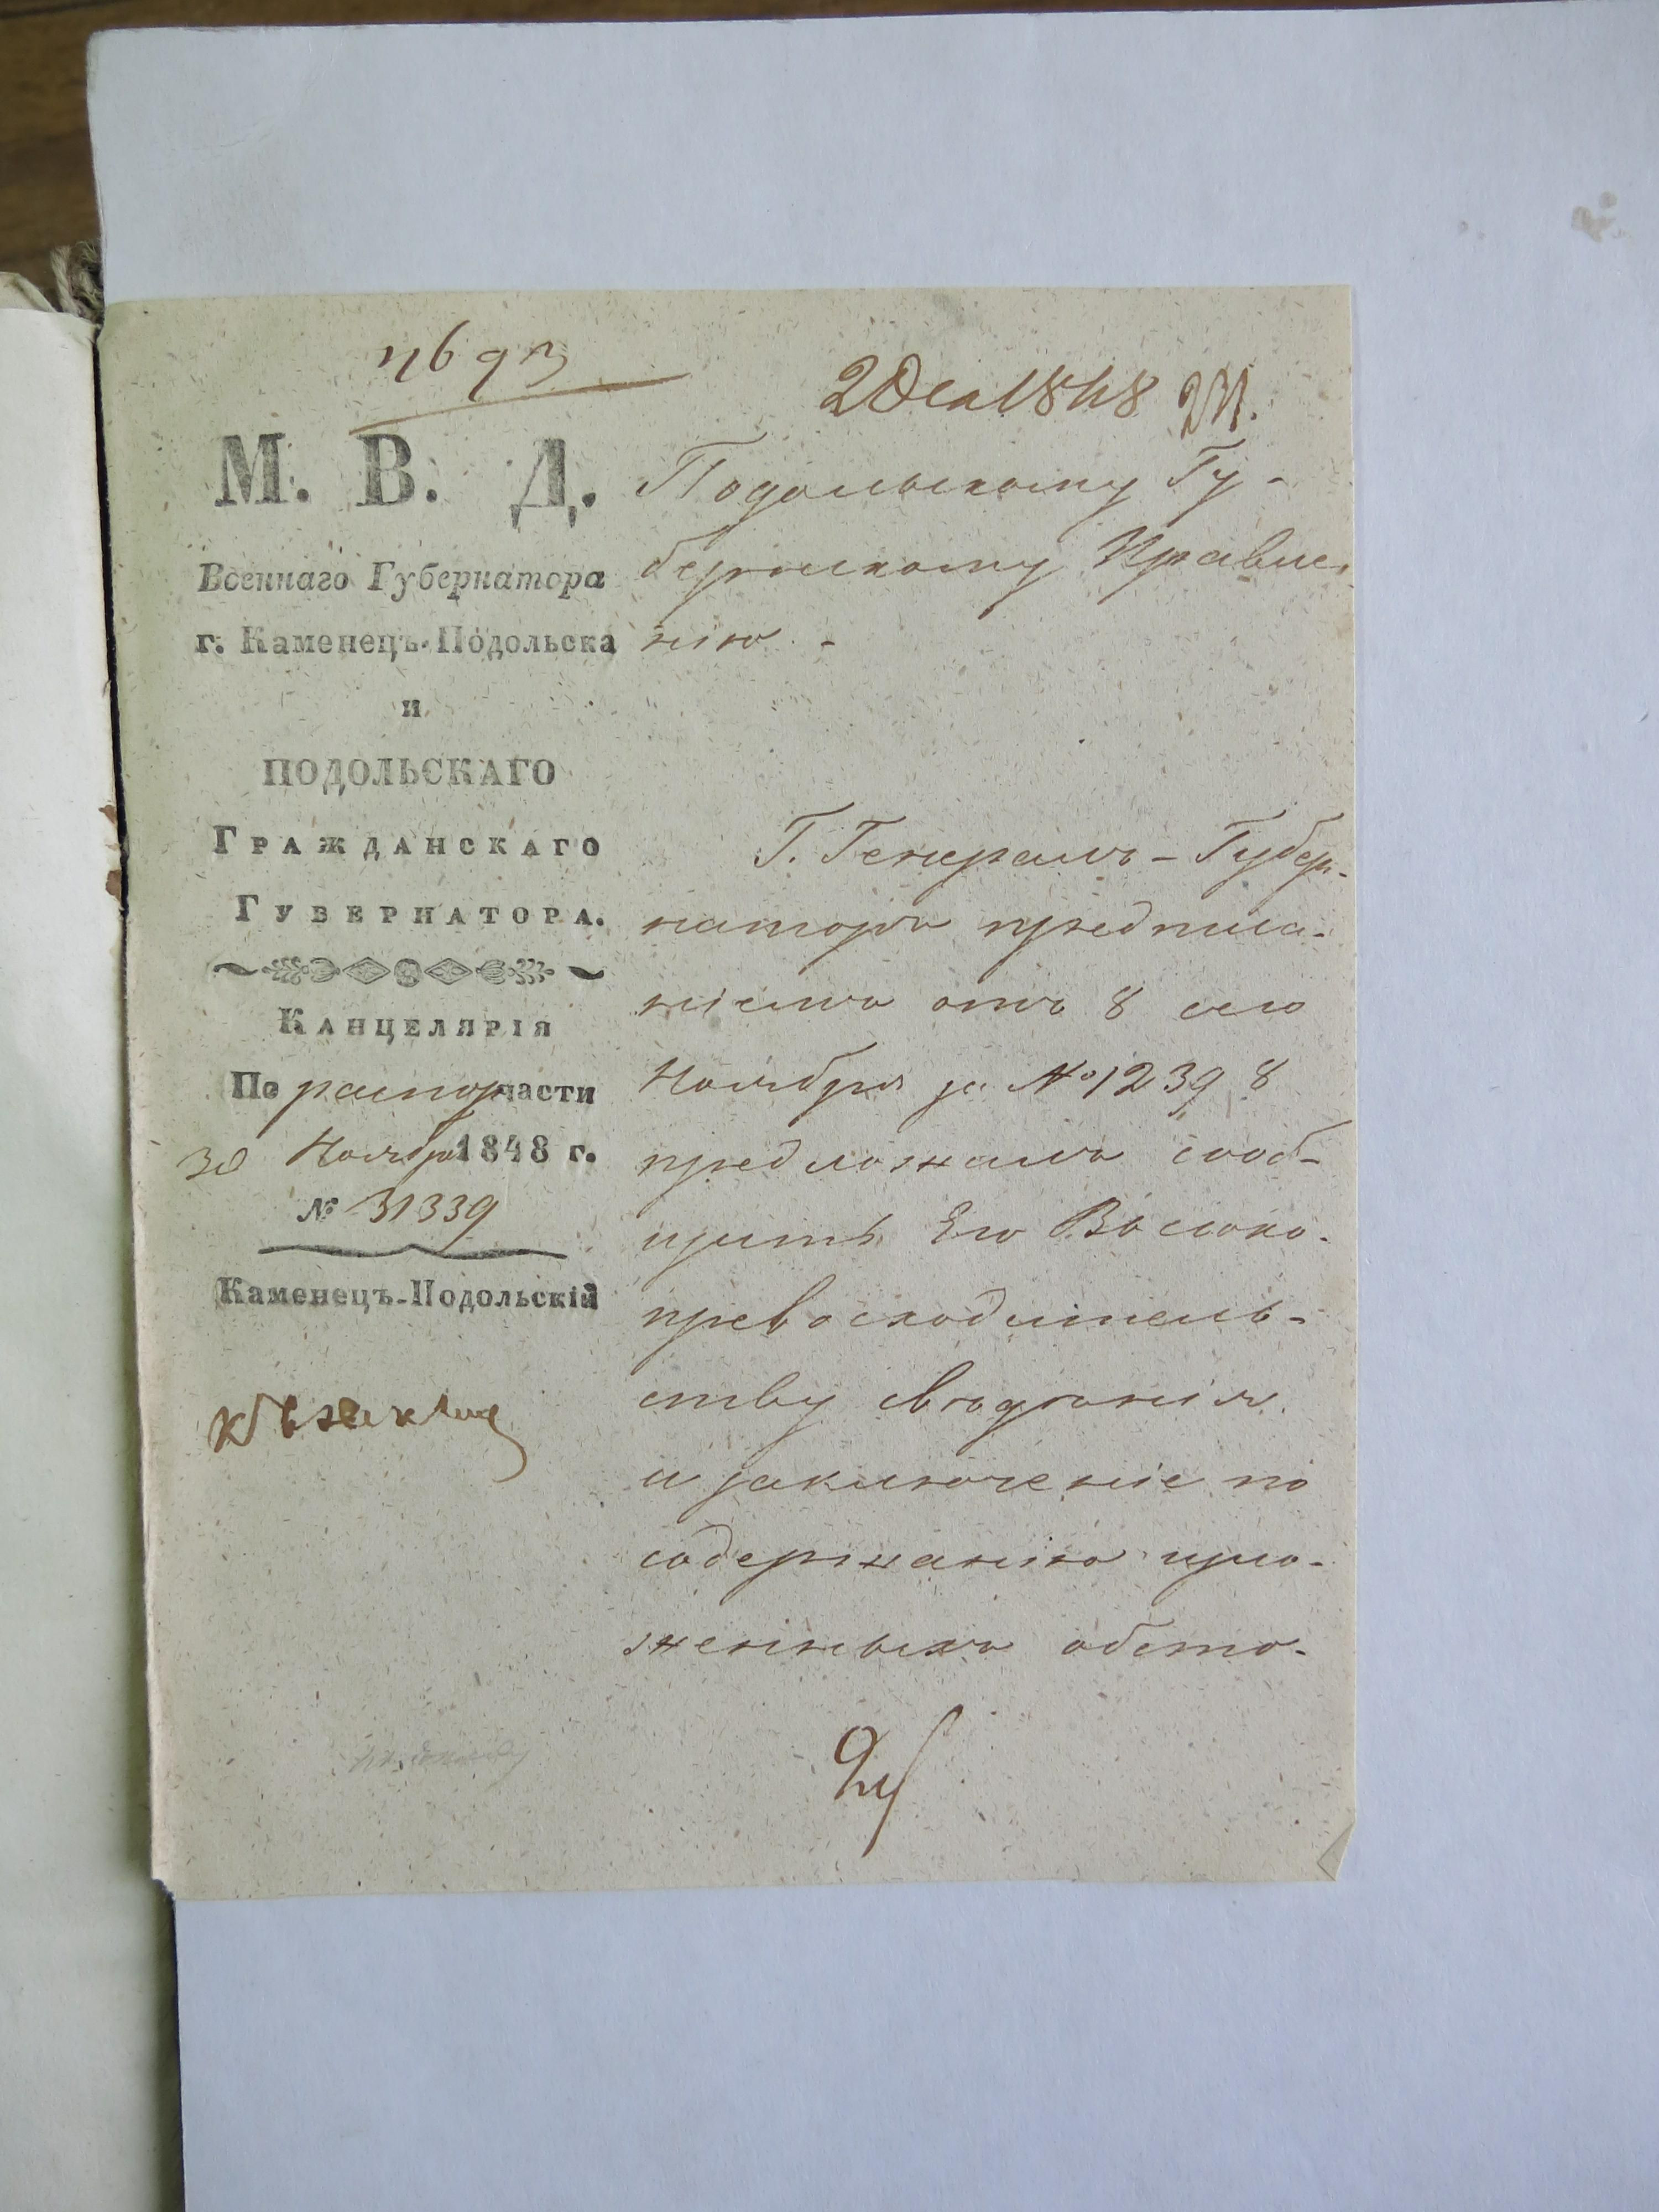 2 Дек 1848
М. В. Д.
Военнаго Губернатора
г. Каменецъ-Подольска
и
ПОДОЛЬСКАГО
ГРАЖДАНСКАГО
ГУБЕРНАТОРА.
КАНЦЕЛЯРІЯ
По распор части
30 Ноября 1848 г.
№ 31339
Каменецъ-Подольскій
Подольскому Гу-
бернскому Правле-
нію.
Г. Генералъ-Губер-
наторъ предписа-
ніемъ отъ 8 сего
Ноября за №12398
предложилъ сооб-
щить Его Высоко-
превосходитель-
ству сведенія
и заключеніе по
содержанію изло-
женныхъ обсто-